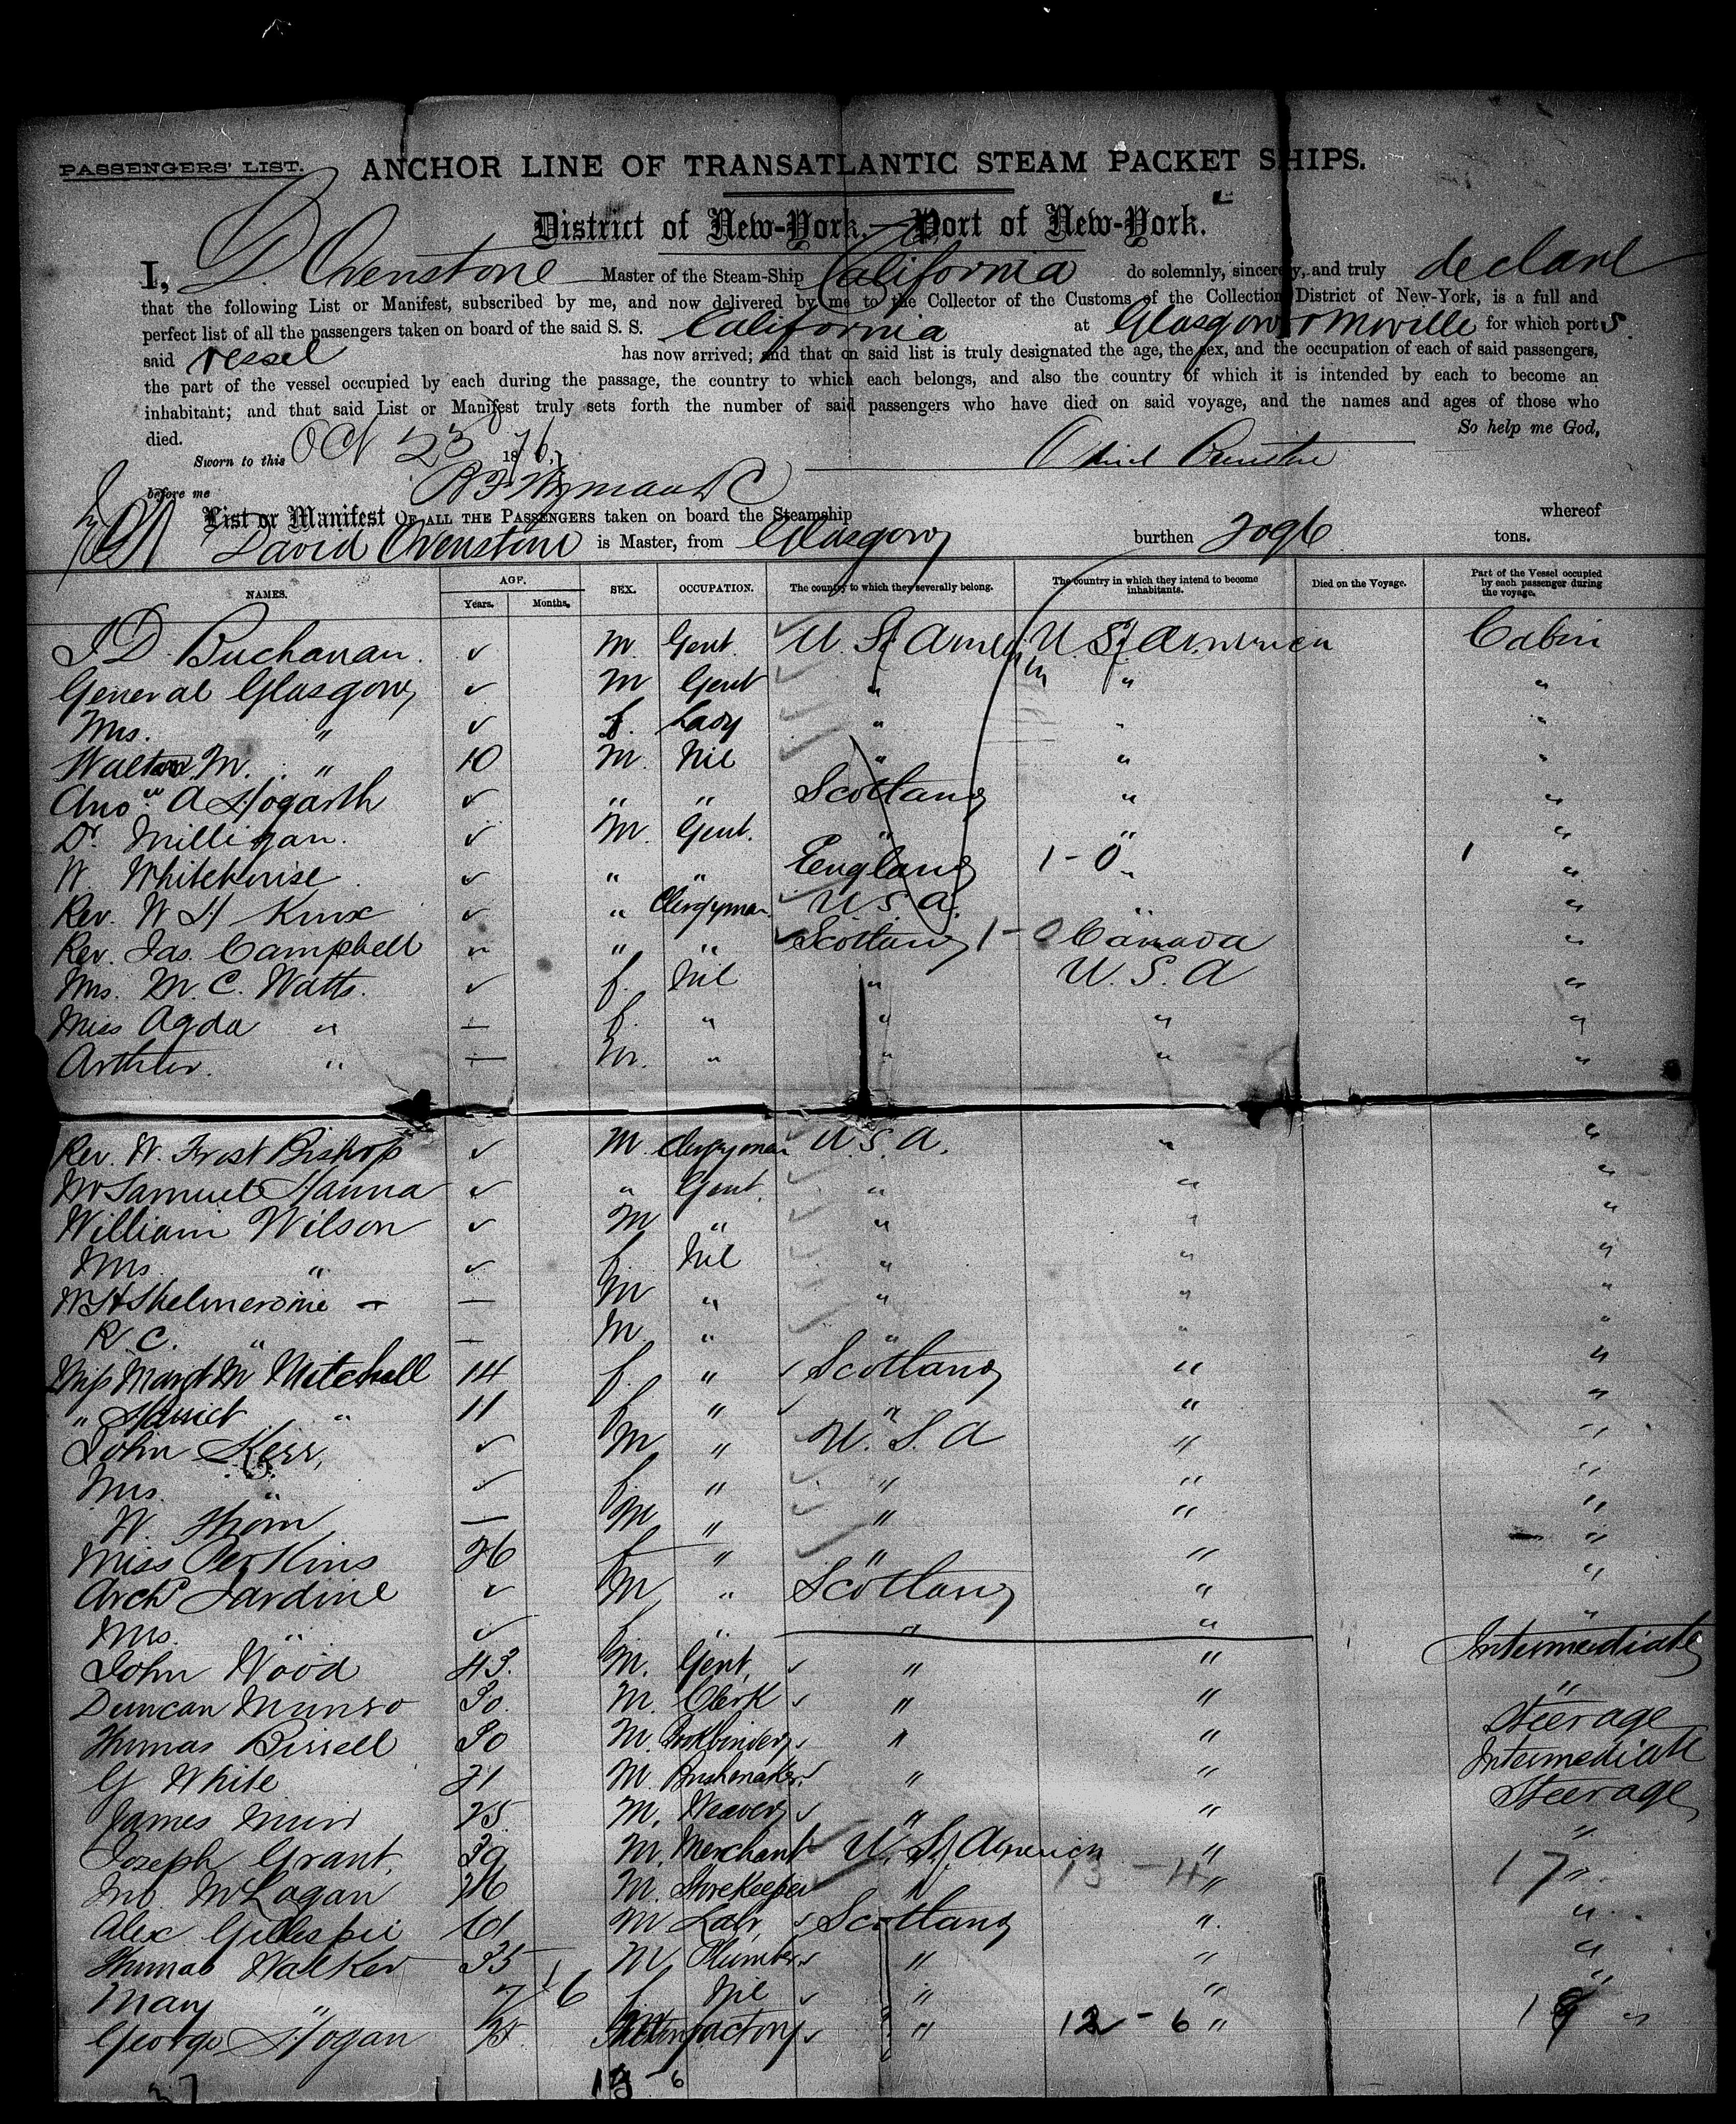 PASSENGERS' LIST. ANCHOR LINE OF TRANSATLANTIC STEAM PACKET SHIPS.
District of New-York.—Port of New-York.
I, D. Ovenstone Master of the Steam-Ship California do solemnly, sincerely, and truly declare
that the following List or Manifest, subscribed by me, and now delivered by me to the Collector of the Customs of the Collection District of New-York, is a full and
perfect list of all the passengers taken on board of the said S. S. California at Glasgow & Moville for which ports
said vessel has now arrived; and that on said list is truly designated the age, the sex, and the occupation of each of said passengers,
the part of the vessel occupied by each during the passage, the country to which each belongs, and also the country of which it is intended by each to become an
inhabitant; and that said List or Manifest truly sets forth the number of said passengers who have died on said voyage, and the names and ages of those who
died. So help me God,
Sworn to this Oct 23 1876, David Ovenstone
before me
List or Manifest OF ALL THE PASSENGERS taken on board the Steamship whereof
David Ovenstone is Master, from Glasgow burthen 2096 tons.
NAMES. AGE. Years. Months. SEX. OCCUPATION. The country to which they severally belong. The country in which they intend to become inhabitants. Died on the Voyage. Part of the Vessel occupied by each passenger during the voyage.
J D Buchanan. ✓ M Gent. U. St America U. St America Cabin
General Glasgow ✓ M Gent " " "
Mrs. " ✓ f. Lady " " "
Walton M. " 10 M. Nil " " "
A Hogarth ✓ " " Scotland " "
Dr Milligan. ✓ M Gent. " " "
W. Whitehouse ✓ " " England 1-0 " 1 "
Rev. W H ✓ " Clergyman U S A. " "
Rev. Jas. Campbell ✓ " " Scotland 1-0 Canada "
Mrs. M. C. Watts. ✓ f. Nil " U. S. A "
Miss Agda " — f. " " " "
Arthur. " — m. " " " "
Rev. W. Frost Bishop ✓ M Clergyman U. S. A. " "
Mr Samuel Hanna ✓ " Gent. " " "
William Wilson ✓ M " " " "
Mrs " ✓ f Nil " " "
W H Skelmerdine — M " " " "
R C. " — M " " " "
Miss Margt M Mitchell 14 f. " Scotland " "
" Harriet " 11 f " " " "
John Kerr, ✓ M " U. S. A " "
Mrs. " ✓ f " " " "
W. Thom — M " " " "
Miss Perkins 26 f " " " "
Archd Jardine ✓ M " Scotland " "
Mrs. " ✓ f " " " "
John Wood 43. M. Gent. " " Intermediate
Duncan Munro 30. M. Clerk " " "
Thomas Bissell 30 M. Bookbinder " " Steerage
G White 21 M. Brushmaker " " Intermediate
James Muir 25 M. Weaver " " Steerage
Joseph Grant, 39 M. Merchant U. St America " "
McLagan 26 M. Storekeeper " 13 - 4 " 17 "
Alex Gillespie 61 M Labr. Scotland " "
Thomas Walker 35 M Plumber " " "
Mary " 7 6 f Nil " " "
George Hogan " 12 - 6 " "